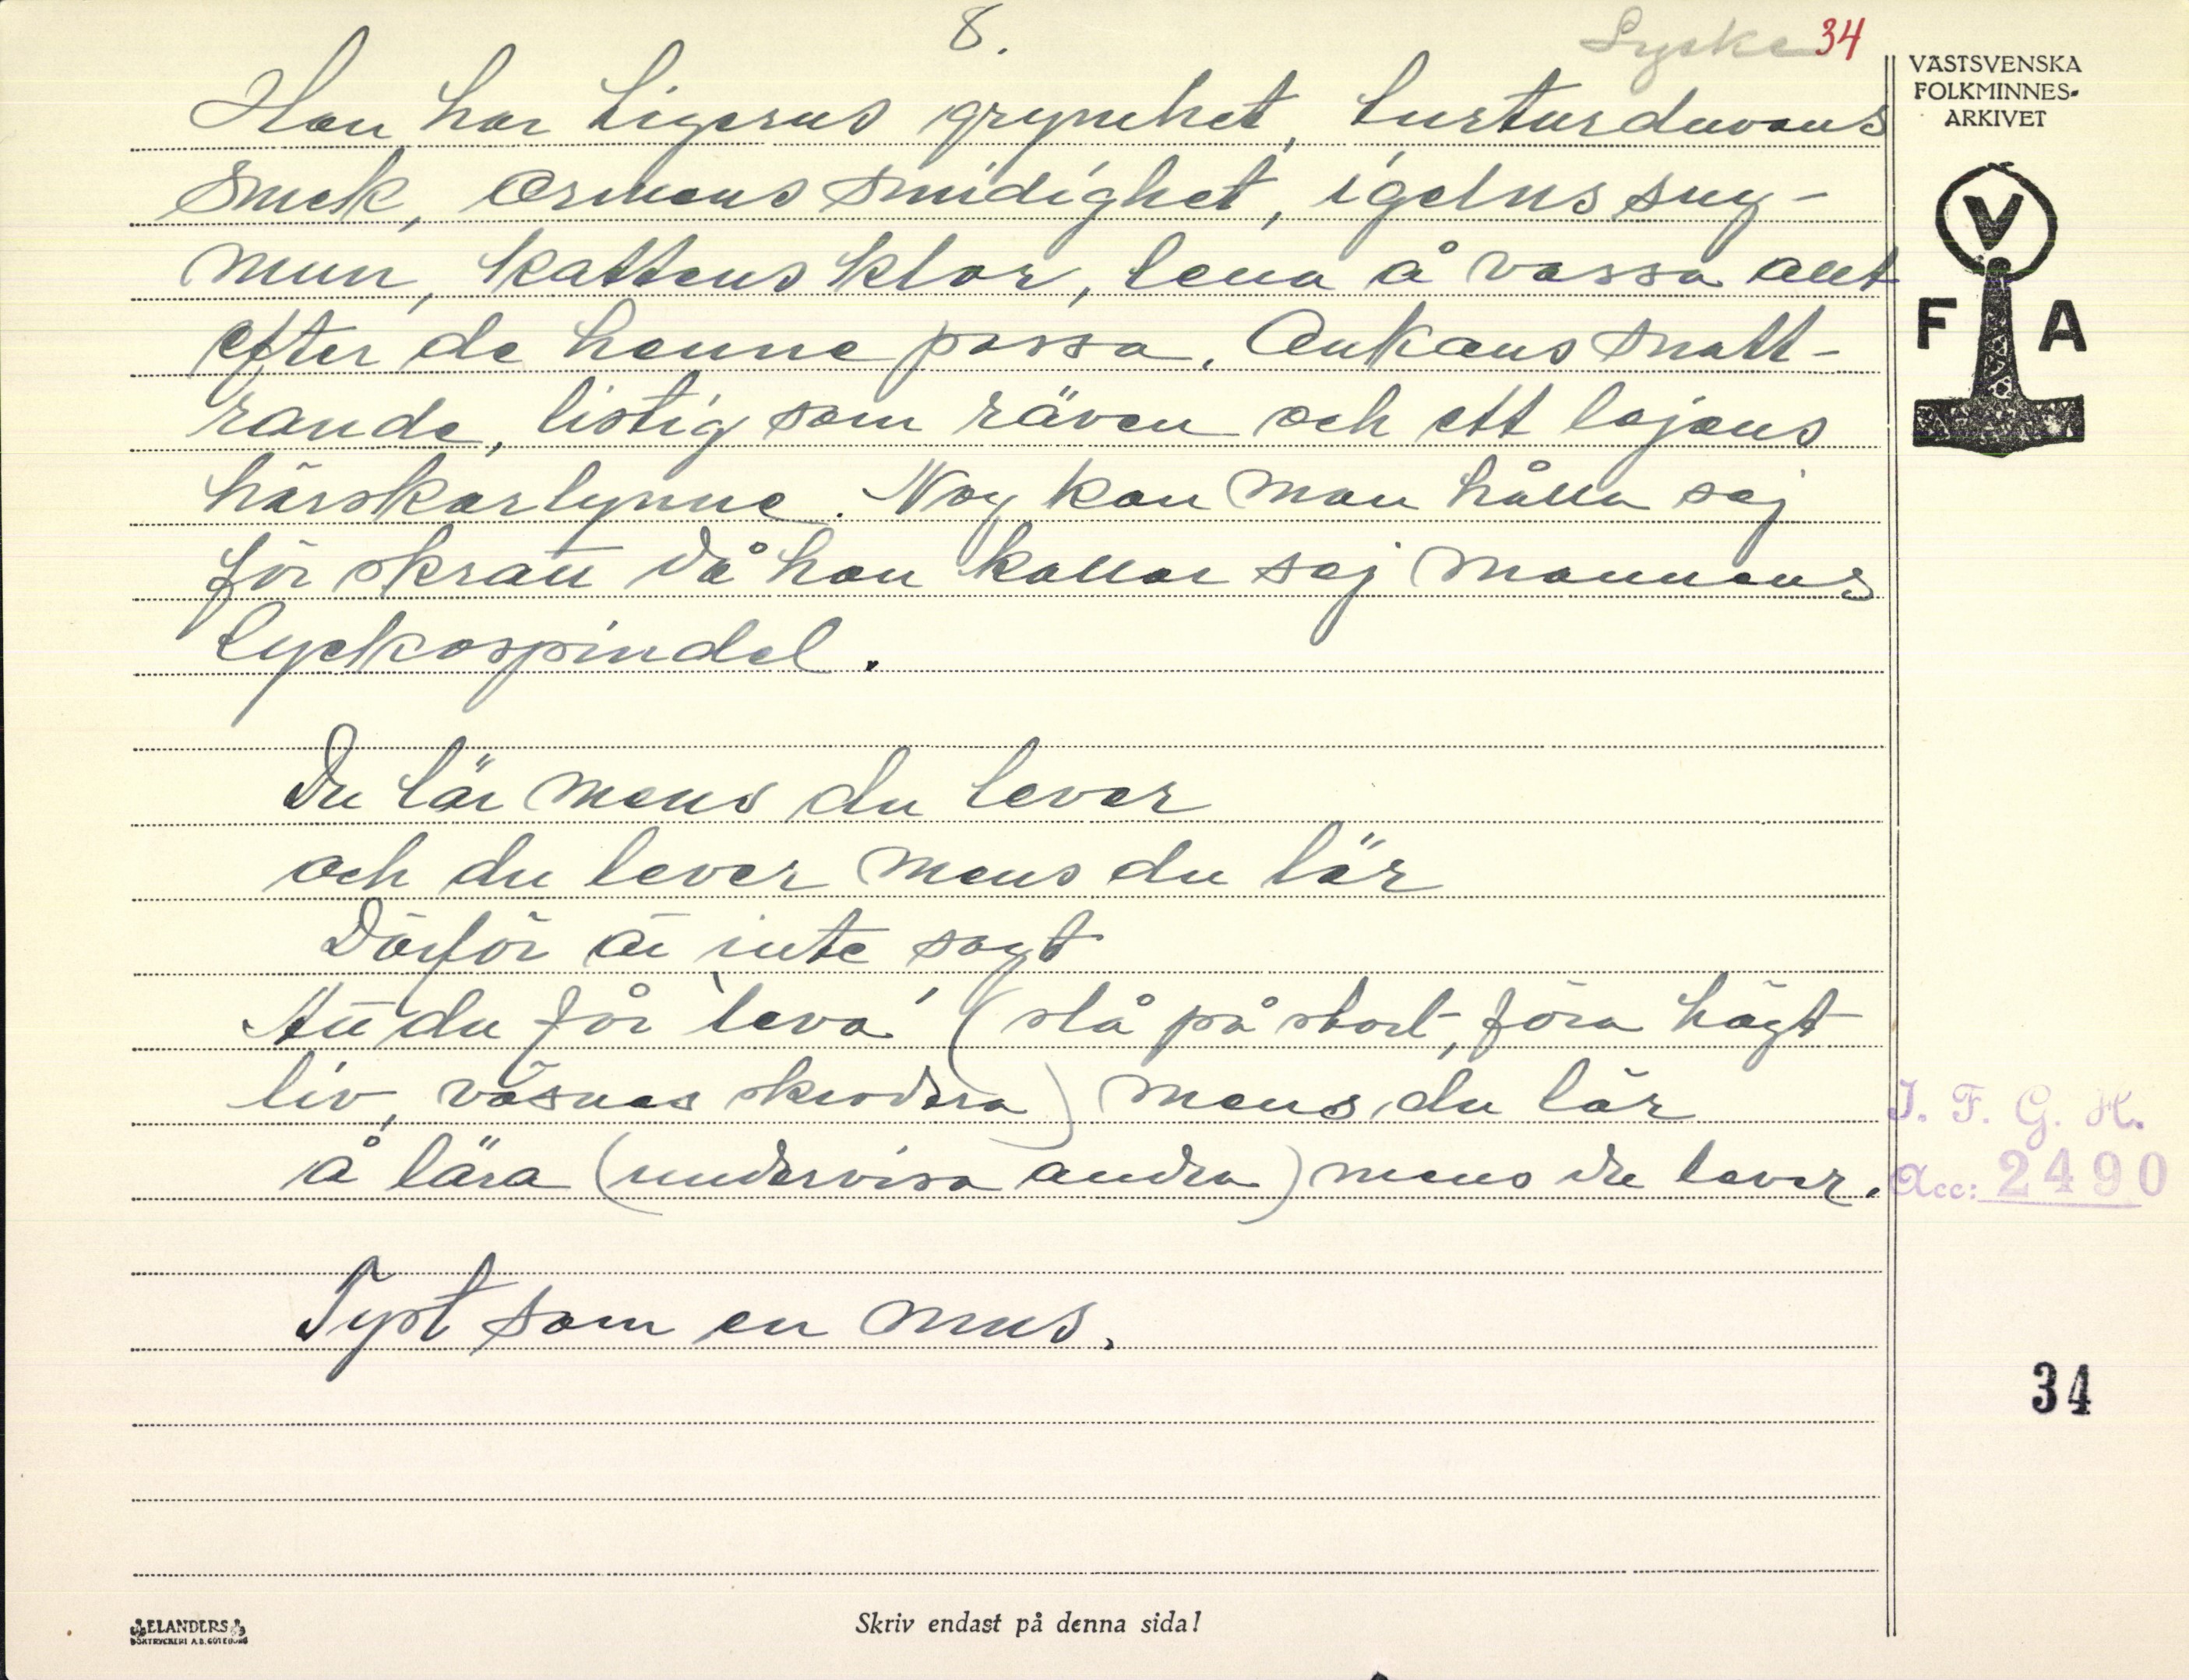 8.
Lyske 34
VÄSTSVENSKA
FOLKMINNES-
ARKIVET
V
F A
Hon har tigerns grymhet, turturduvans
smek, ormens smidighet, igelns sug-
mun, kattens klor, lena å vassa allt
efter de henne passa. Ankans snatt-
rande, listig som räven och ett lejons
härskarlynne. Nog kan man hålla sej
för skratt då hon kallar sej mannens
lyckospindel.
Du lär mens du lever
och du lever mens du lär
Därför är inte sagt
Att du får 'leva' (slå på stort, föra högt
liv, väsnas skrodera) mens du lär
å lära (undervisa andra) mens du lever.
I. F. G. H.
Acc: 2490
Tyst som en mus.
34
ELANDERS
BOKTRYCKERI A.B. GÖTEBORG
Skriv endast på denna sida!